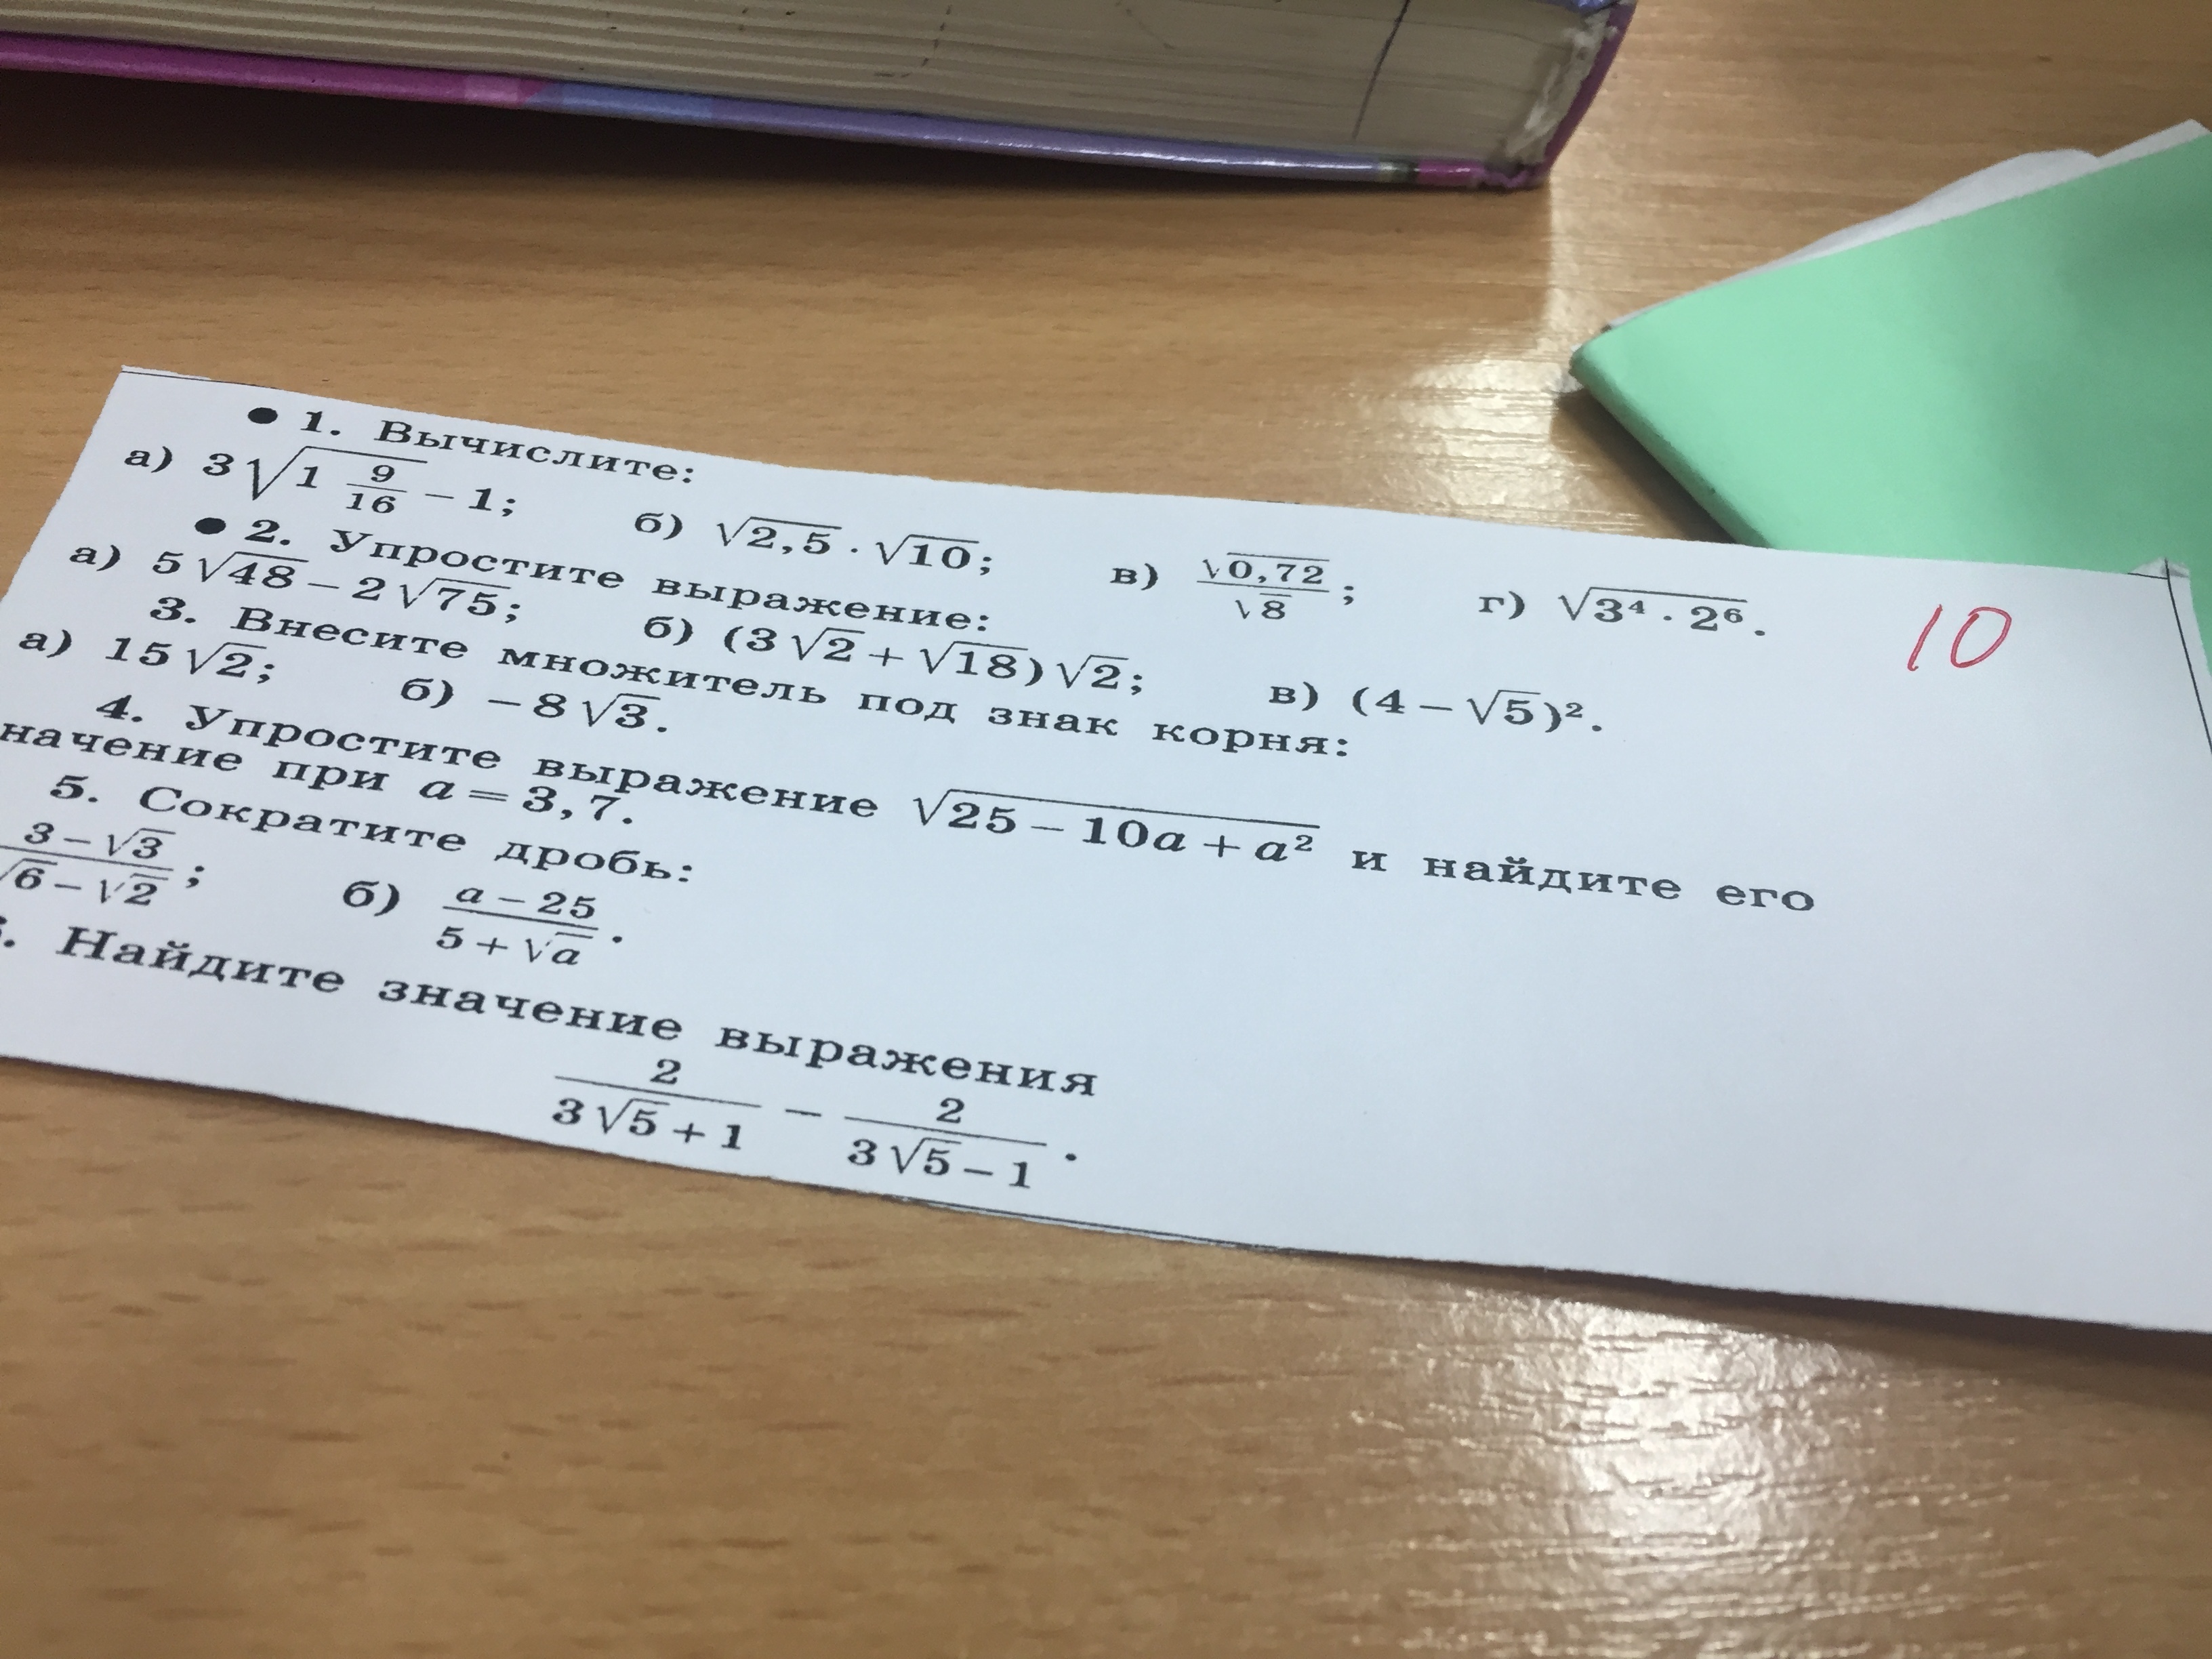 ● 1. Вычислите:
а) 3√(1 9/16) − 1; б) √2,5 · √10; в) √0,72/√8; г) √(3⁴ · 2⁶).
10
● 2. Упростите выражение:
а) 5√48 − 2√75; б) (3√2 + √18)√2; в) (4 − √5)².
3. Внесите множитель под знак корня:
а) 15√2; б) −8√3.
4. Упростите выражение √(25 − 10a + a²) и найдите его
начение при a = 3,7.
5. Сократите дробь:
(3 − √3)/(√6 − √2); б) (a − 25)/(5 + √a).
. Найдите значение выражения
2/(3√5 + 1) − 2/(3√5 − 1).